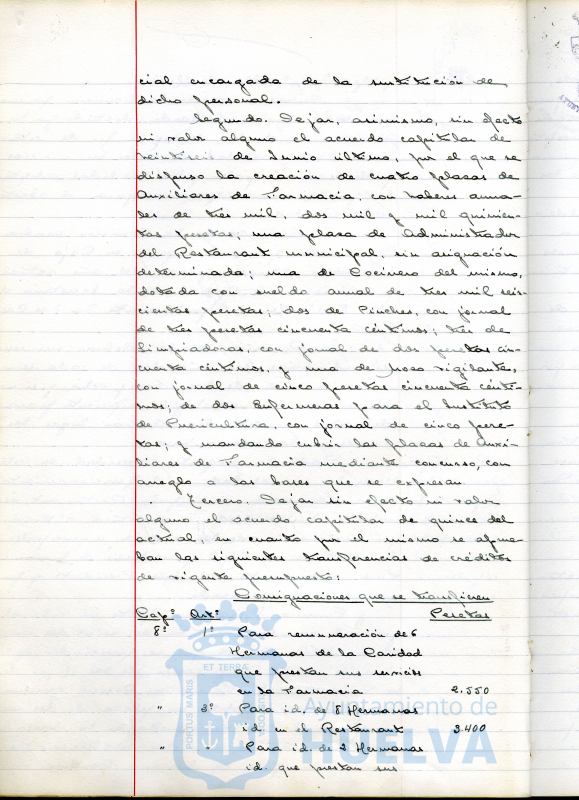 cial encargada de la sustitución de
dicho personal.
Segundo. Dejar, asimismo, sin efecto
ni valor alguno el acuerdo capitular de
veintiseis de Junio último, por el que se
dispuso la creación de cuatro plazas de
Auxiliares de Farmacia, con haberes anua-
les de tres mil, dos mil y mil quinien-
tas pesetas; una plaza de Administrador
del Restaurant municipal, sin asignación
determinada; una de Cocinero del mismo,
dotada con sueldo anual de tres mil seis-
cientas pesetas; dos de Pinches, con jornal
de tres pesetas cincuenta céntimos; tres de
Limpiadoras, con jornal de dos pesetas cin-
cuenta céntimos, y una de Mozo vigilante,
con jornal de cinco pesetas cincuenta cénti-
mos; de dos Enfermeras para el Instituto
de Puericultura, con jornal de cinco pese-
tas; y mandando cubrir las plazas de Auxi-
liares de Farmacia mediante concurso, con
arreglo a las bases que se expresan.
Tercero. Dejar sin efecto ni valor
alguno el acuerdo capitular de quince del
actual, en cuanto por el mismo se aproba-
ban las siguientes transferencias de créditos
de vigente presupuesto:
Consignaciones que se transfieren
Cap.º Art.º Pesetas
8º 1º Para remuneración de 6
Hermanas de la Caridad
que prestan sus servicios
en la Farmacia 2.550
" 3º Para id. de 8 Hermanas
id. en el Restaurant 3.400
" " Para id. de 2 Hermanas
id. que prestan sus
PORTUS MARIS ET TERRÆ CUSTODIA
Ayuntamiento de
HUELVA